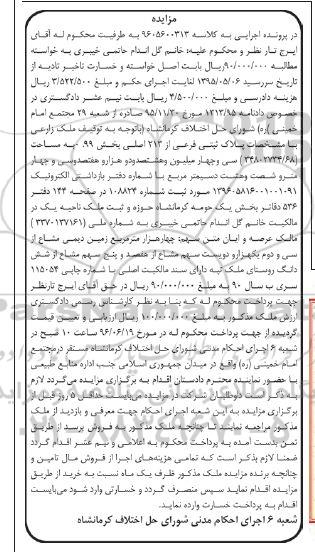 مزایده
در پرونده اجرایی به کلاسه ۹۶۰۵۶۰۰۳۱۳ به طرفیت محکوم له آقای
ایرج تبار نظر و محکوم علیه: خانم گل اندام حاتمی خیبری به خواسته
مطالبه ۹۰/۰۰۰/۰۰۰ریال بابت اصل خواسته و خسارت تاخیر تادیه از
تاریخ سررسید ۱۳۹۵/۰۵/۰۶ لغایت اجرای حکم و مبلغ ۳/۵۲۲/۵۰۰ ریال
هزینه دادرسی و مبلغ ۴/۵۰۰/۰۰۰ ریال بابت نیم عشر دادگستری در
خصوص دادنامه ۱۲۱۳/۹۵ مورخ ۹۵/۱۱/۳۰ صادره از شعبه ۲۹ مجتمع امام
خمینی (ره) شورای حل اختلاف کرمانشاه (باتوجه به توقیف ملک زارعی
با مشخصات پلاک ثبتی فرعی از ۲۱۳ اصلی بخش ۰۹۹ به مساحت
(۳۴۸۰۲۷۳۴/۶۸) سی و چهار میلیون و هشتصد و دو هزار و هفتصد و سی و چهار
متر و شصت و هشت دسیمتر مربع با شماره دفتر بازداشتی الکترونیک
۱۳۹۶۰۵۸۱۶۰۰۱۰۰۱۰۹۱ مورد ثبت شماره ۱۰۸۸۲۴ در صفحه ۱۴۴ دفتر
۵۳۶ دفاتر بخش یک حومه کرمانشاه حوزه و ثبت ملک ناحیه یک در
مالکیت خانم گل اندام حاتمی خیبری به شماره ملی (۳۳۷۰۱۳۷۱۶۱)
مالک عرصه و اعیان متن سهم: چهارهزار مترمربع زمین دیمی مشاع از
سی و دوم یکهزار و دویست سهم مشاع از هفتصد و پنج سهم مشاع از شش
دانگ روستای ملک تپه دارای سند مالکیت اصلی با شماره چاپی ۱۱۵۰۵۴
سری ب سال ۹۰ به مبلغ ۹۰/۰۰۰/۰۰۰ ریال در حق آقای ایرج تارنظر
جهت پرداخت محکوم له که بنا به نظر کارشناس رسمی دادگستری
ارزش ملک مذکور به مبلغ ۱۰۰/۰۰۰/۰۰۰ ریال ارزیابی و تعیین قیمت
گردیده از جهت پرداخت محکوم له در مورخ ۹۶/۰۶/۱۹ ساعت ۱۰ صبح در
شعبه ۶ اجرای احکام مدنی شورای حل اختلاف کرمانشاه مستقر درمجتمع
امام خمینی (ره) واقع در میدان جمهوری اسلامی جنب اداره منابع طبیعی
با حضور نماینده محترم دادستان اقدام به برگزاری مزایده می‌گردد لازم
به ذکر است داوطلبان شرکت در مزایده می‌بایست حداقل ۵ روز قبل از
برگزاری مزایده به این شعبه اجرای احکام جهت معرفی و بازدید از ملک
مذکور مراجعه نمایند تا چنانچه ملک مذکور به فروش برسد از طریق
ثمن بدست آمده به پرداخت محکوم به اعلامی و نیم عشر اقدام گردد
ضمنا لازم بذکر است که تمامی هزینه‌های اجرا از فروش مال تامین و
چنانچه برنده مزایده ملک مذکور ظرف یک ماه نسبت به خرید از طریق
مزایده اقدام نماید سپس منصرف گردد و خسارتی وارد شود می‌بایست
اقدام به پرداخت خسارت وارده نماید.
شعبه ۶ اجرای احکام مدنی شورای حل اختلاف کرمانشاه